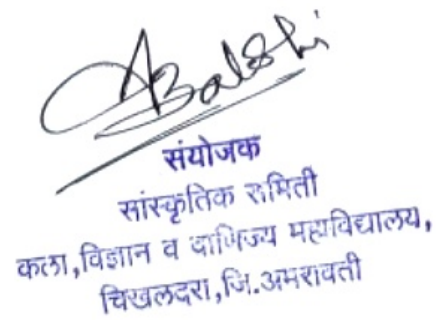 ABakshi
संयोजक
सांस्कृतिक समिती
कला,विज्ञान व वाणिज्य महाविद्यालय,
चिखलदरा,जि.अमरावती